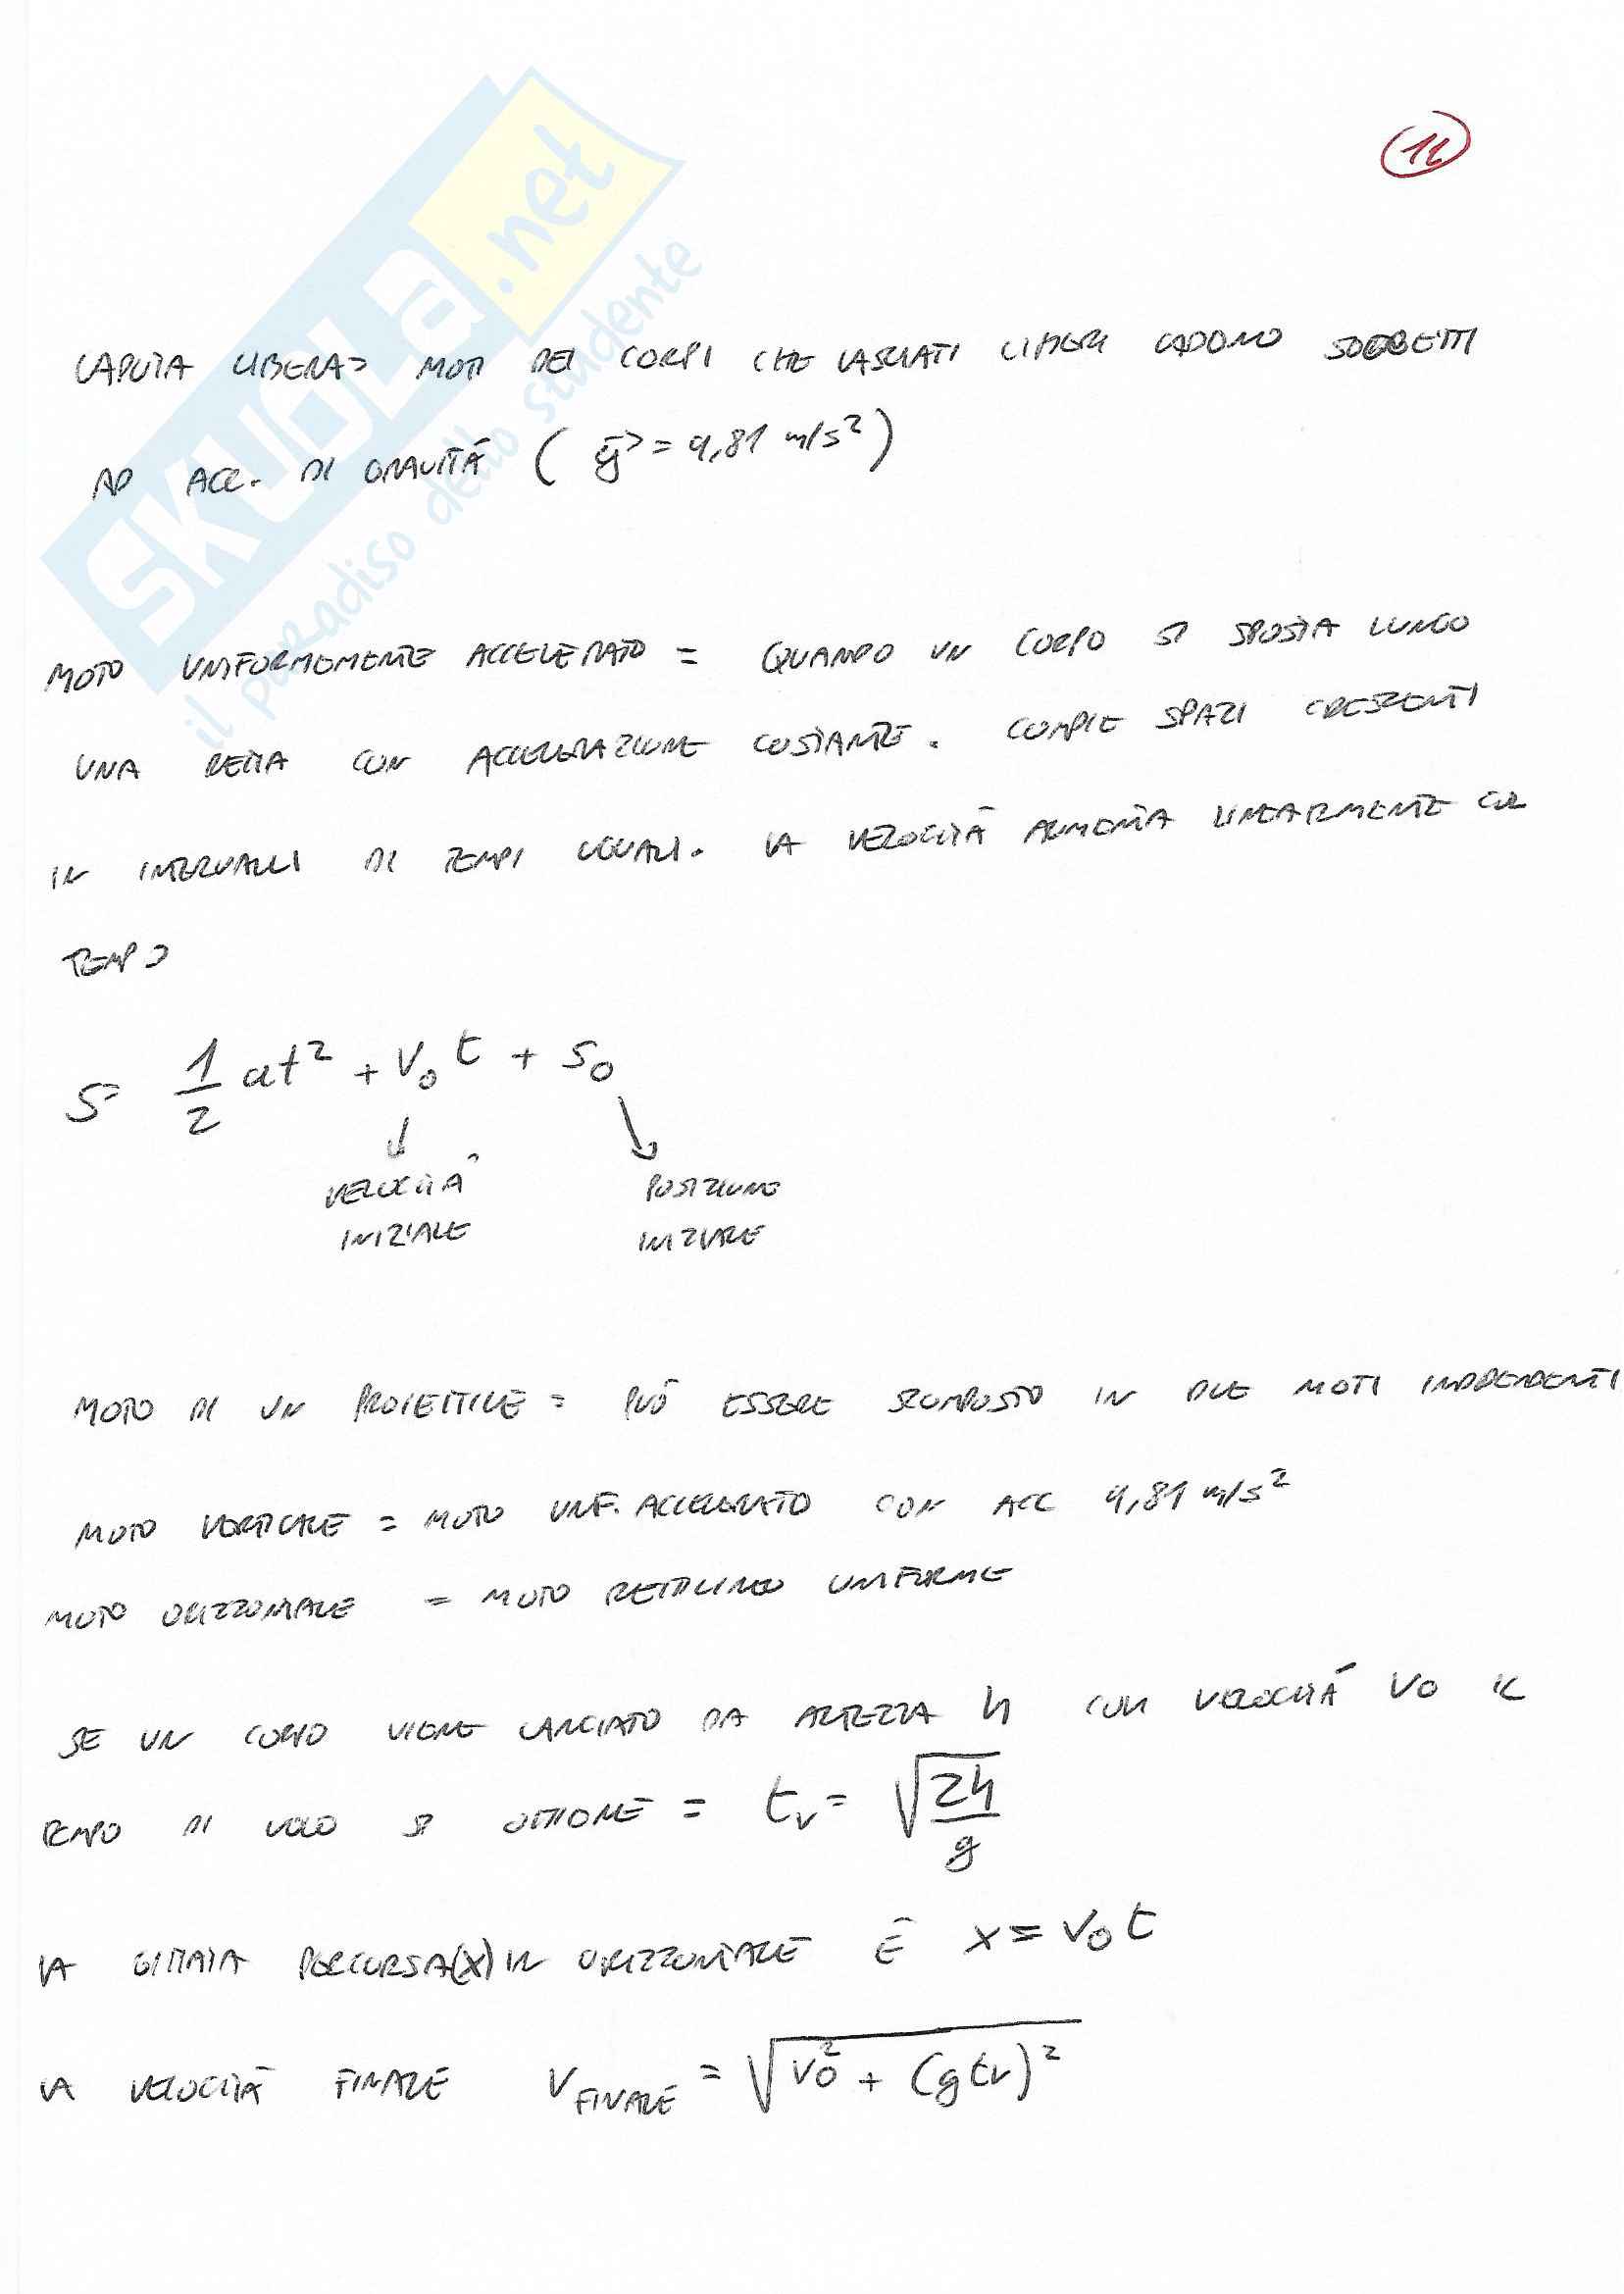 14
SKUOLA.net
il paradiso dello studente
CADUTA LIBERA => MOTI DEI CORPI CHE LASCIATI LIBERI CADONO SOGGETTI
AD ACC. DI GRAVITÁ ( g⃗ = 9,81 m/s²)
MOTO UNIFORMEMENTE ACCELERATO = QUANDO UN CORPO SI SPOSTA LUNGO
UNA RETTA CON ACCELERAZIONE COSTANTE. COMPIE SPAZI CRESCENTI
IN INTERVALLI DI TEMPI UGUALI. LA VELOCITÀ AUMENTA LINEARMENTE COL
TEMPO
S = 1/2 at² + V₀ t + S₀
VELOCITÀ INIZIALE
POSIZIONE INIZIALE
MOTO DI UN PROIETTILE = PUÒ ESSERE SCOMPOSTO IN DUE MOTI INDIPENDENTI
MOTO VERTICALE = MOTO UNIF. ACCELERATO CON ACC 9,81 m/s²
MOTO ORIZZONTALE = MOTO RETTILINEO UNIFORME
SE UN CORPO VIENE LANCIATO DA ALTEZZA h CON VELOCITÁ V0 IL
TEMPO DI VOLO SI OTTIENE = tᵥ = √(2h/g)
LA GITTATA PERCORSA(X) IN ORIZZONTALE È x = V₀ t
LA VELOCITÀ FINALE V FINALE = √(V0² + (g tv)²)